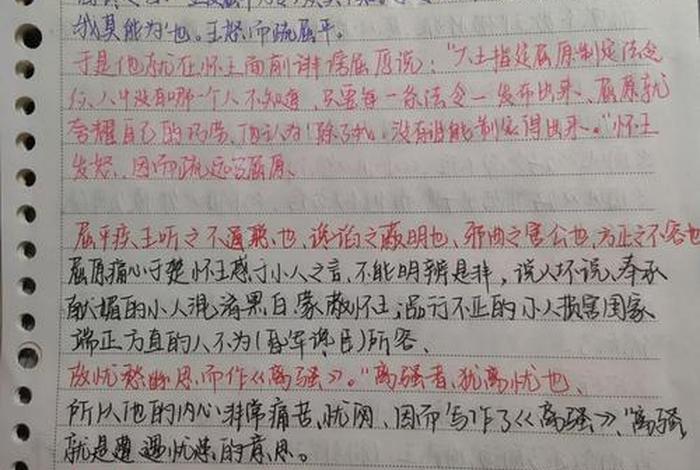 我莫能为也。王怒而疏屈平。
于是他就在怀王面前诽谤屈原说："大王指定屈原制定法令
人中没有哪一个人不知道,只要每一条法令一发布出来、屈原就
夸耀自己的功劳、认为'除了我,没有谁能制定得出来。"怀王
发怒、因而疏远了屈原、
屈平疾王听之不聪也、谗谄之蔽明也、邪曲之害公也,方正之不容也
屈原痛心于楚怀王惑于小人之言,不能明辨是非,说人坏说、奉承
献媚的小人混淆黑白,蒙蔽怀王;品行不正的小人损害国家
端正方直的人不为(昏军谗臣)所容、
故忧愁幽思而作《离骚》。"离骚者,犹离忧也、
所以他的内心非常痛苦、忧闷、因而写作了《离骚》、"离骚
就是遭遇忧愁的意思。